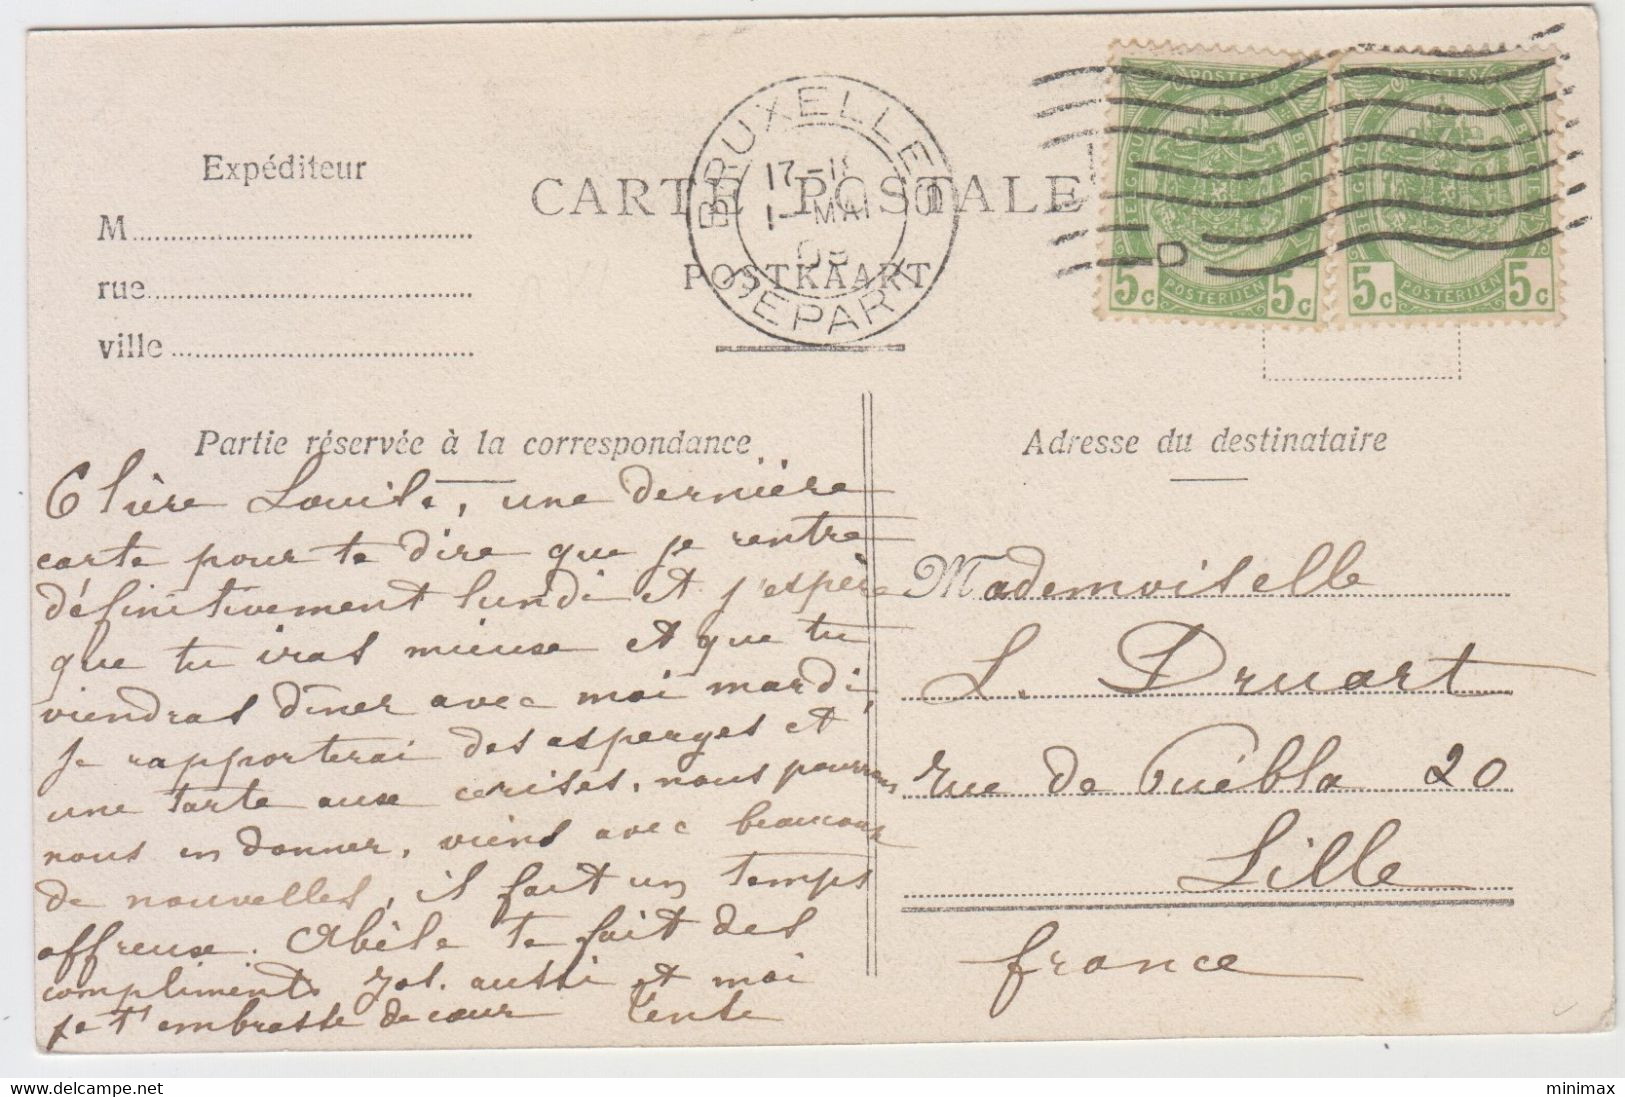 Expéditeur
M
rue
ville
CARTE POSTALE
POSTKAART
BRUXELLES
17-18
1 MAI
DEPART
POSTES
BELGIQUE BELGIE
5c POSTERIJEN 5c
POSTES
BELGIQUE BELGIE
5c POSTERIJEN 5c
Partie réservée à la correspondance
Chère Louise, une dernière
carte pour te dire que je rentre
définitivement lundi et j'espère
que tu iras mieux et que tu
viendras dîner avec moi mardi
je rapporterai des asperges et
une tarte aux cerises, nous pourrons
nous en donner, viens avec beaucoup
de nouvelles, il fait un temps
affreux. Abèle te fait des
compliments Jos. aussi et moi
je t'embrasse de cœur
Adresse du destinataire
Mademoiselle
L. Druart
rue de Puébla 20
Lille
france
minimax